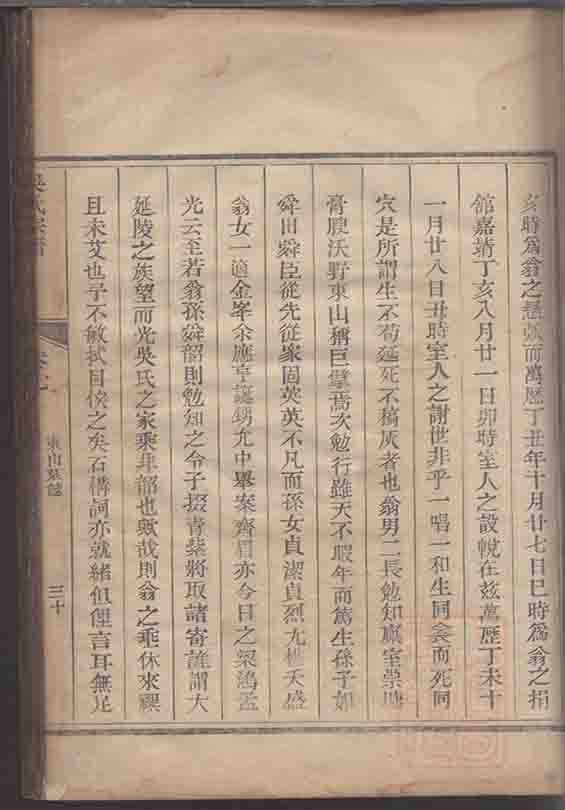 亥時爲翁之懸弧而萬歷丁丑年十月廿七日巳時爲翁之捐
館嘉靖丁亥八月廿一日卯時室人之設帨在茲萬歷丁未十
一月廿八日丑時室人之謝世非乎一唱一和生同衾而死同
穴是所謂生不苟延死不槁灰者也翁男二長勉知廣室崇墉
膏腴沃野東山稱巨擘焉次勉行雖天不暇年而篤生孫子如
舜田舜臣從先從家固英英不凡而孫女貞潔貞烈尤標天盛
翁女一適金峯余應亨誕甥允中舉案齊眉亦今日之梁鴻孟
光云至若翁孫舜韶則勉知之令子掇青紫將取諸寄誰謂大
延陵之族望而光吳氏之家乘非韶也歟哉則翁之垂休來禩
且未艾也予不敏拭目俟之矣石構詞亦就緒但俚言耳無足
吳氏宗譜
東山墓誌
三十